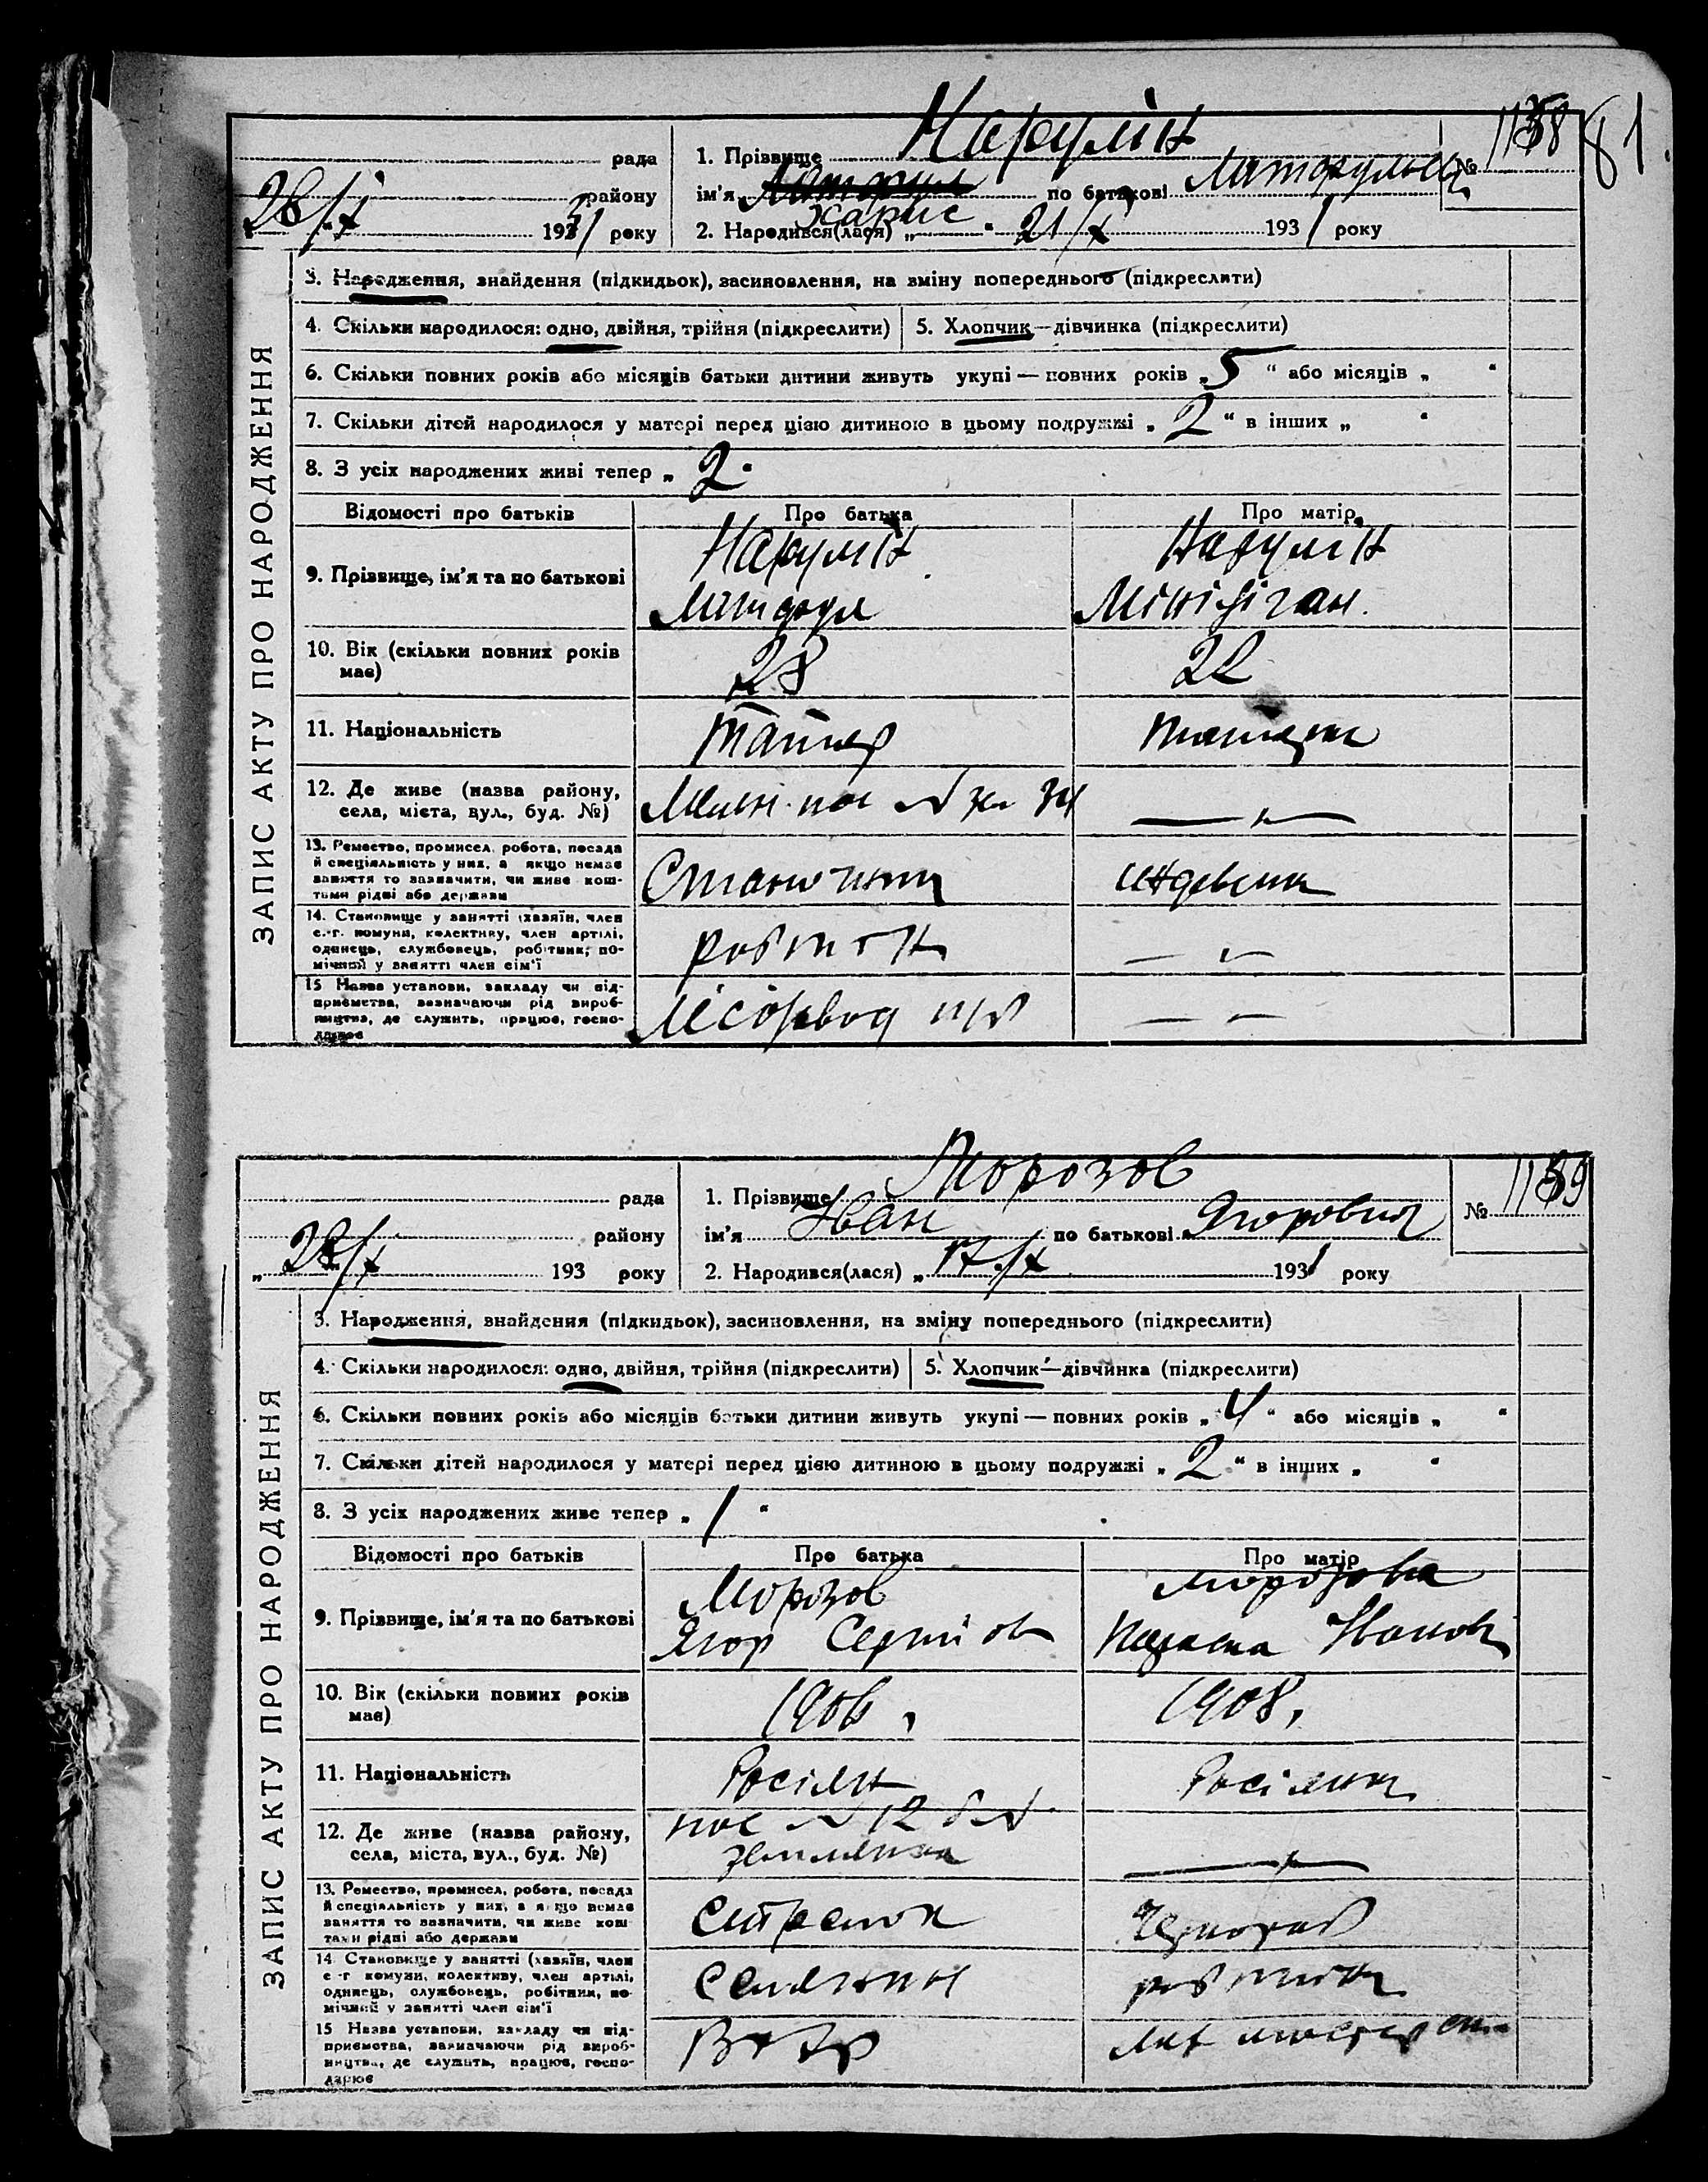 81
рада
району
28/X 1931 року
1. Прізвище Нарулін
ім'я Харис по батькові
№ 1158
2. Народився(лася) „ “ 21/X 1931 року
ЗАПИС АКТУ ПРО НАРОДЖЕННЯ
3. Народження, знайдення (підкидьок), засиновлення, на зміну попереднього (підкреслити)
4. Скільки народилося: одно, двійня, трійня (підкреслити) 5. Хлопчик—дівчинка (підкреслити)
6. Скільки повних років або місяців батьки дитини живуть укупі — повних років „5“ або місяців „ “
7. Скільки дітей народилося у матері перед цією дитиною в цьому подружжі „2“ в інших „ “
8. З усіх народжених живі тепер „2“
Відомості про батьків Про батька Про матір
9. Прізвище, ім'я та по батькові Нарулін Нарулін
10. Вік (скільки повних років має) 28 22
11. Національність Татар
12. Де живе (назва району, села, міста, вул., буд. №)
13. Ремество, промисел, робота, посада
й спеціяльність у них, а якщо немає
заняття то зазначити, чи живе кош-
тами рідні або держави
14. Становище у занятті (хазяїн, член
с.-г. комуни, колективу, член артілі,
одинець, службовець, робітник, по-
мічний у занятті член сім'ї
робітн
15 Назва установи, закладу чи під-
приємства, зазначаючи рід вироб-
ництва, де служить, працює, госпо-
дарює
рада
району
„28/X 193 року
1. Прізвище Морозов
ім'я Іван по батькові Ягорович
№ 1159
2. Народився(лася) „17/X 1931 року
ЗАПИС АКТУ ПРО НАРОДЖЕННЯ
3. Народження, знайдення (підкидьок), засиновлення, на зміну попереднього (підкреслити)
4. Скільки народилося: одно, двійня, трійня (підкреслити) 5. Хлопчик—дівчинка (підкреслити)
6. Скільки повних років або місяців батьки дитини живуть укупі — повних років „4“ або місяців „ “
7. Скільки дітей народилося у матері перед цією дитиною в цьому подружжі „2“ в інших „ “
8. З усіх народжених живе тепер „1“
Відомості про батьків Про батька Про матір
9. Прізвище, ім'я та по батькові
Морозов Морозова
Ягор Сергійов
10. Вік (скільки повних років має) 1906, 1908,
11. Національність Росіян Росіянка
12. Де живе (назва району, села, міста, вул., буд. №)
пос № 12
землянка
13. Ремество, промисел, робота, посада
й спеціяльність у них, а якщо немає
заняття то зазначити, чи живе кош-
тами рідні або держави
14. Становище у занятті (хазяїн, член
с.-г. комуни, колективу, член артілі,
одинець, службовець, робітник, по-
мічний у занятті член сім'ї
15 Назва установи, закладу чи під-
приємства, зазначаючи рід вироб-
ництва, де служить, працює, госпо-
дарює